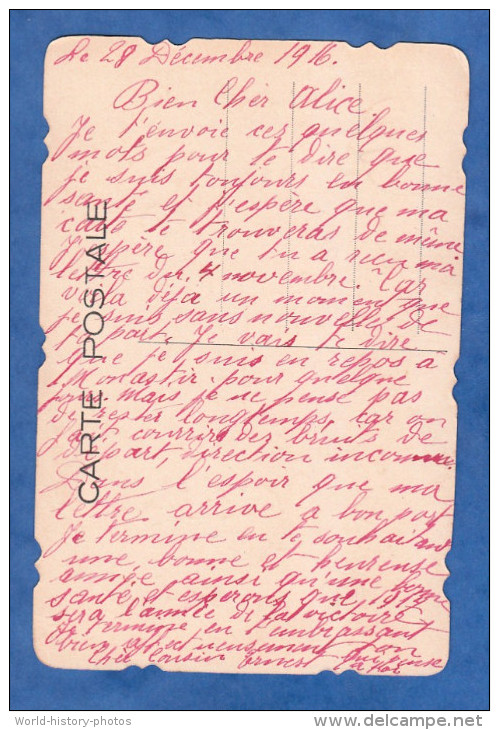 Le 28 Décembre 1916.
Bien Cher Alice
Je t'envoie ces quelques
mots pour te dire que
je suis toujours en bonne
santé et j'espère que ma
carte te trouveras de même
J'espère que tu a reçu ma
lettre du 4 novembre. Car
voila déja un moment que
je suis sans nouvelle de
ta part. Je vais te dire
que je suis en repos a
Monastir pour quelque
jour mais je ne pense pas
de rester longtemps, car on
fait courrir des bruits de
départ, direction inconnue
Dans l'espoir que ma
lettre arrive a bon port
Je termine en te souhaitant
une bonne et heureuse
année ainsi qu'une bonne
santé, et esperons que 1917
sera l'année de la victoire
Je termine en t'embrassant
bien affectueusement ton
Cher Cousin Ernest
CARTE POSTALE
World-history-photos